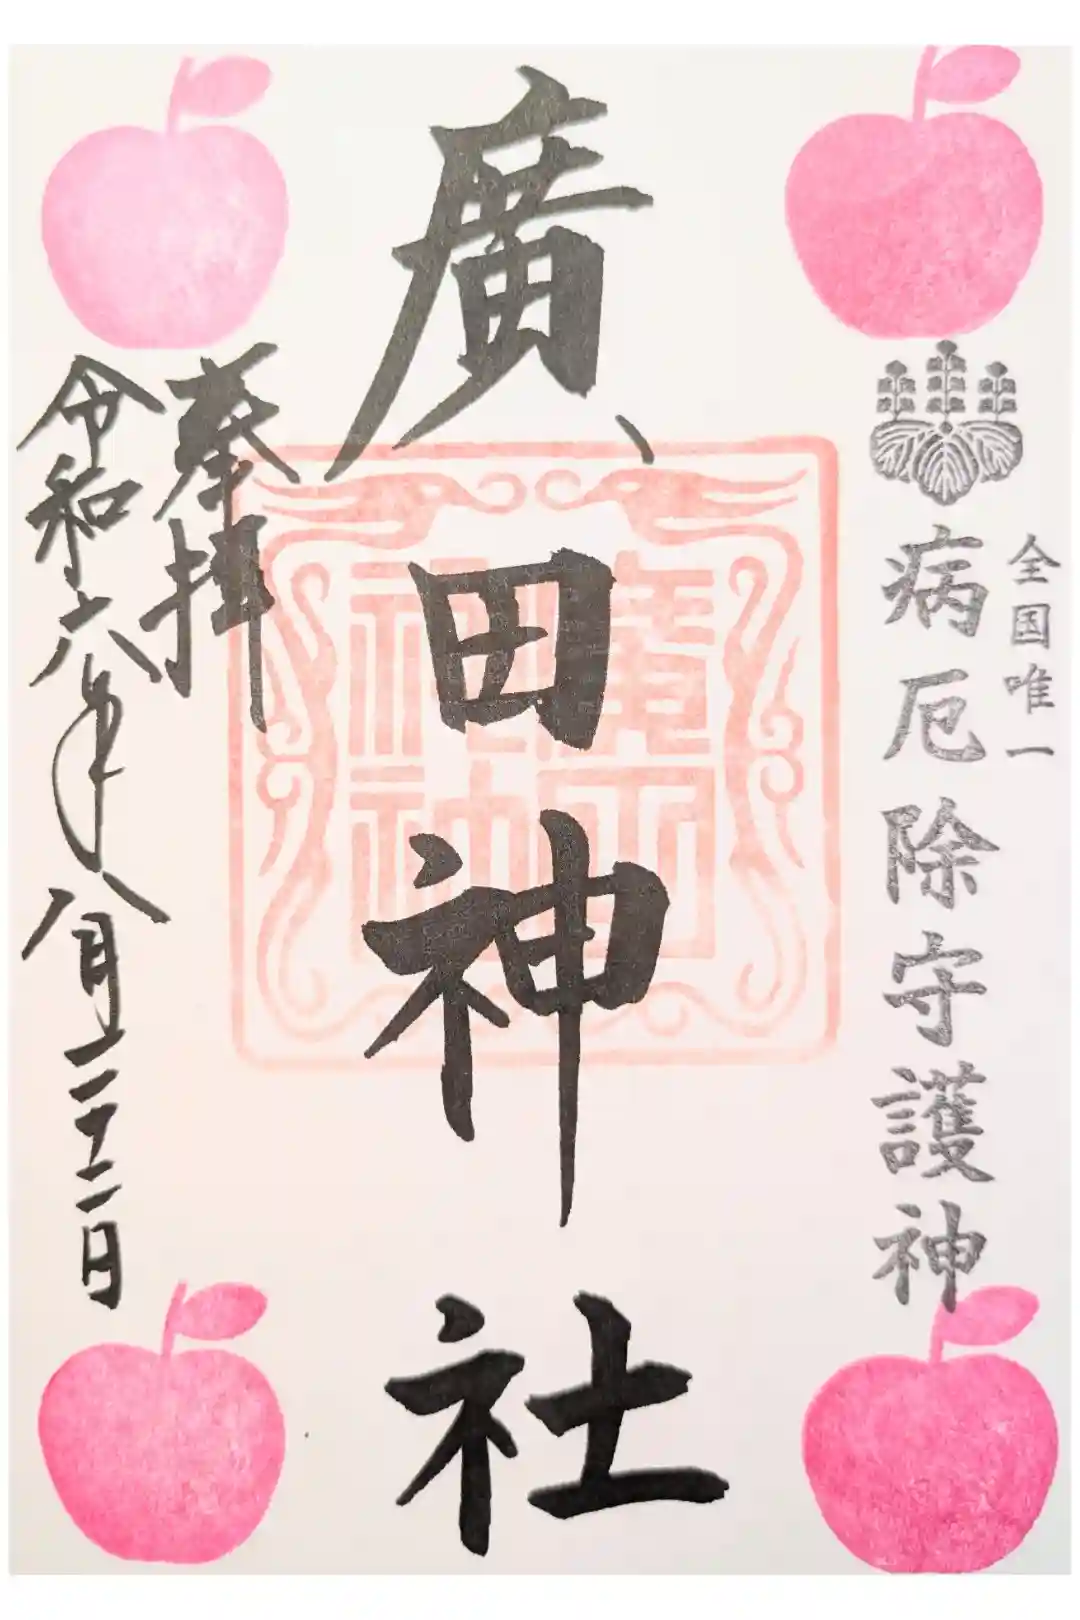 全国唯一
病厄除守護神
廣田神社
奉拝
令和六年八月二十二日